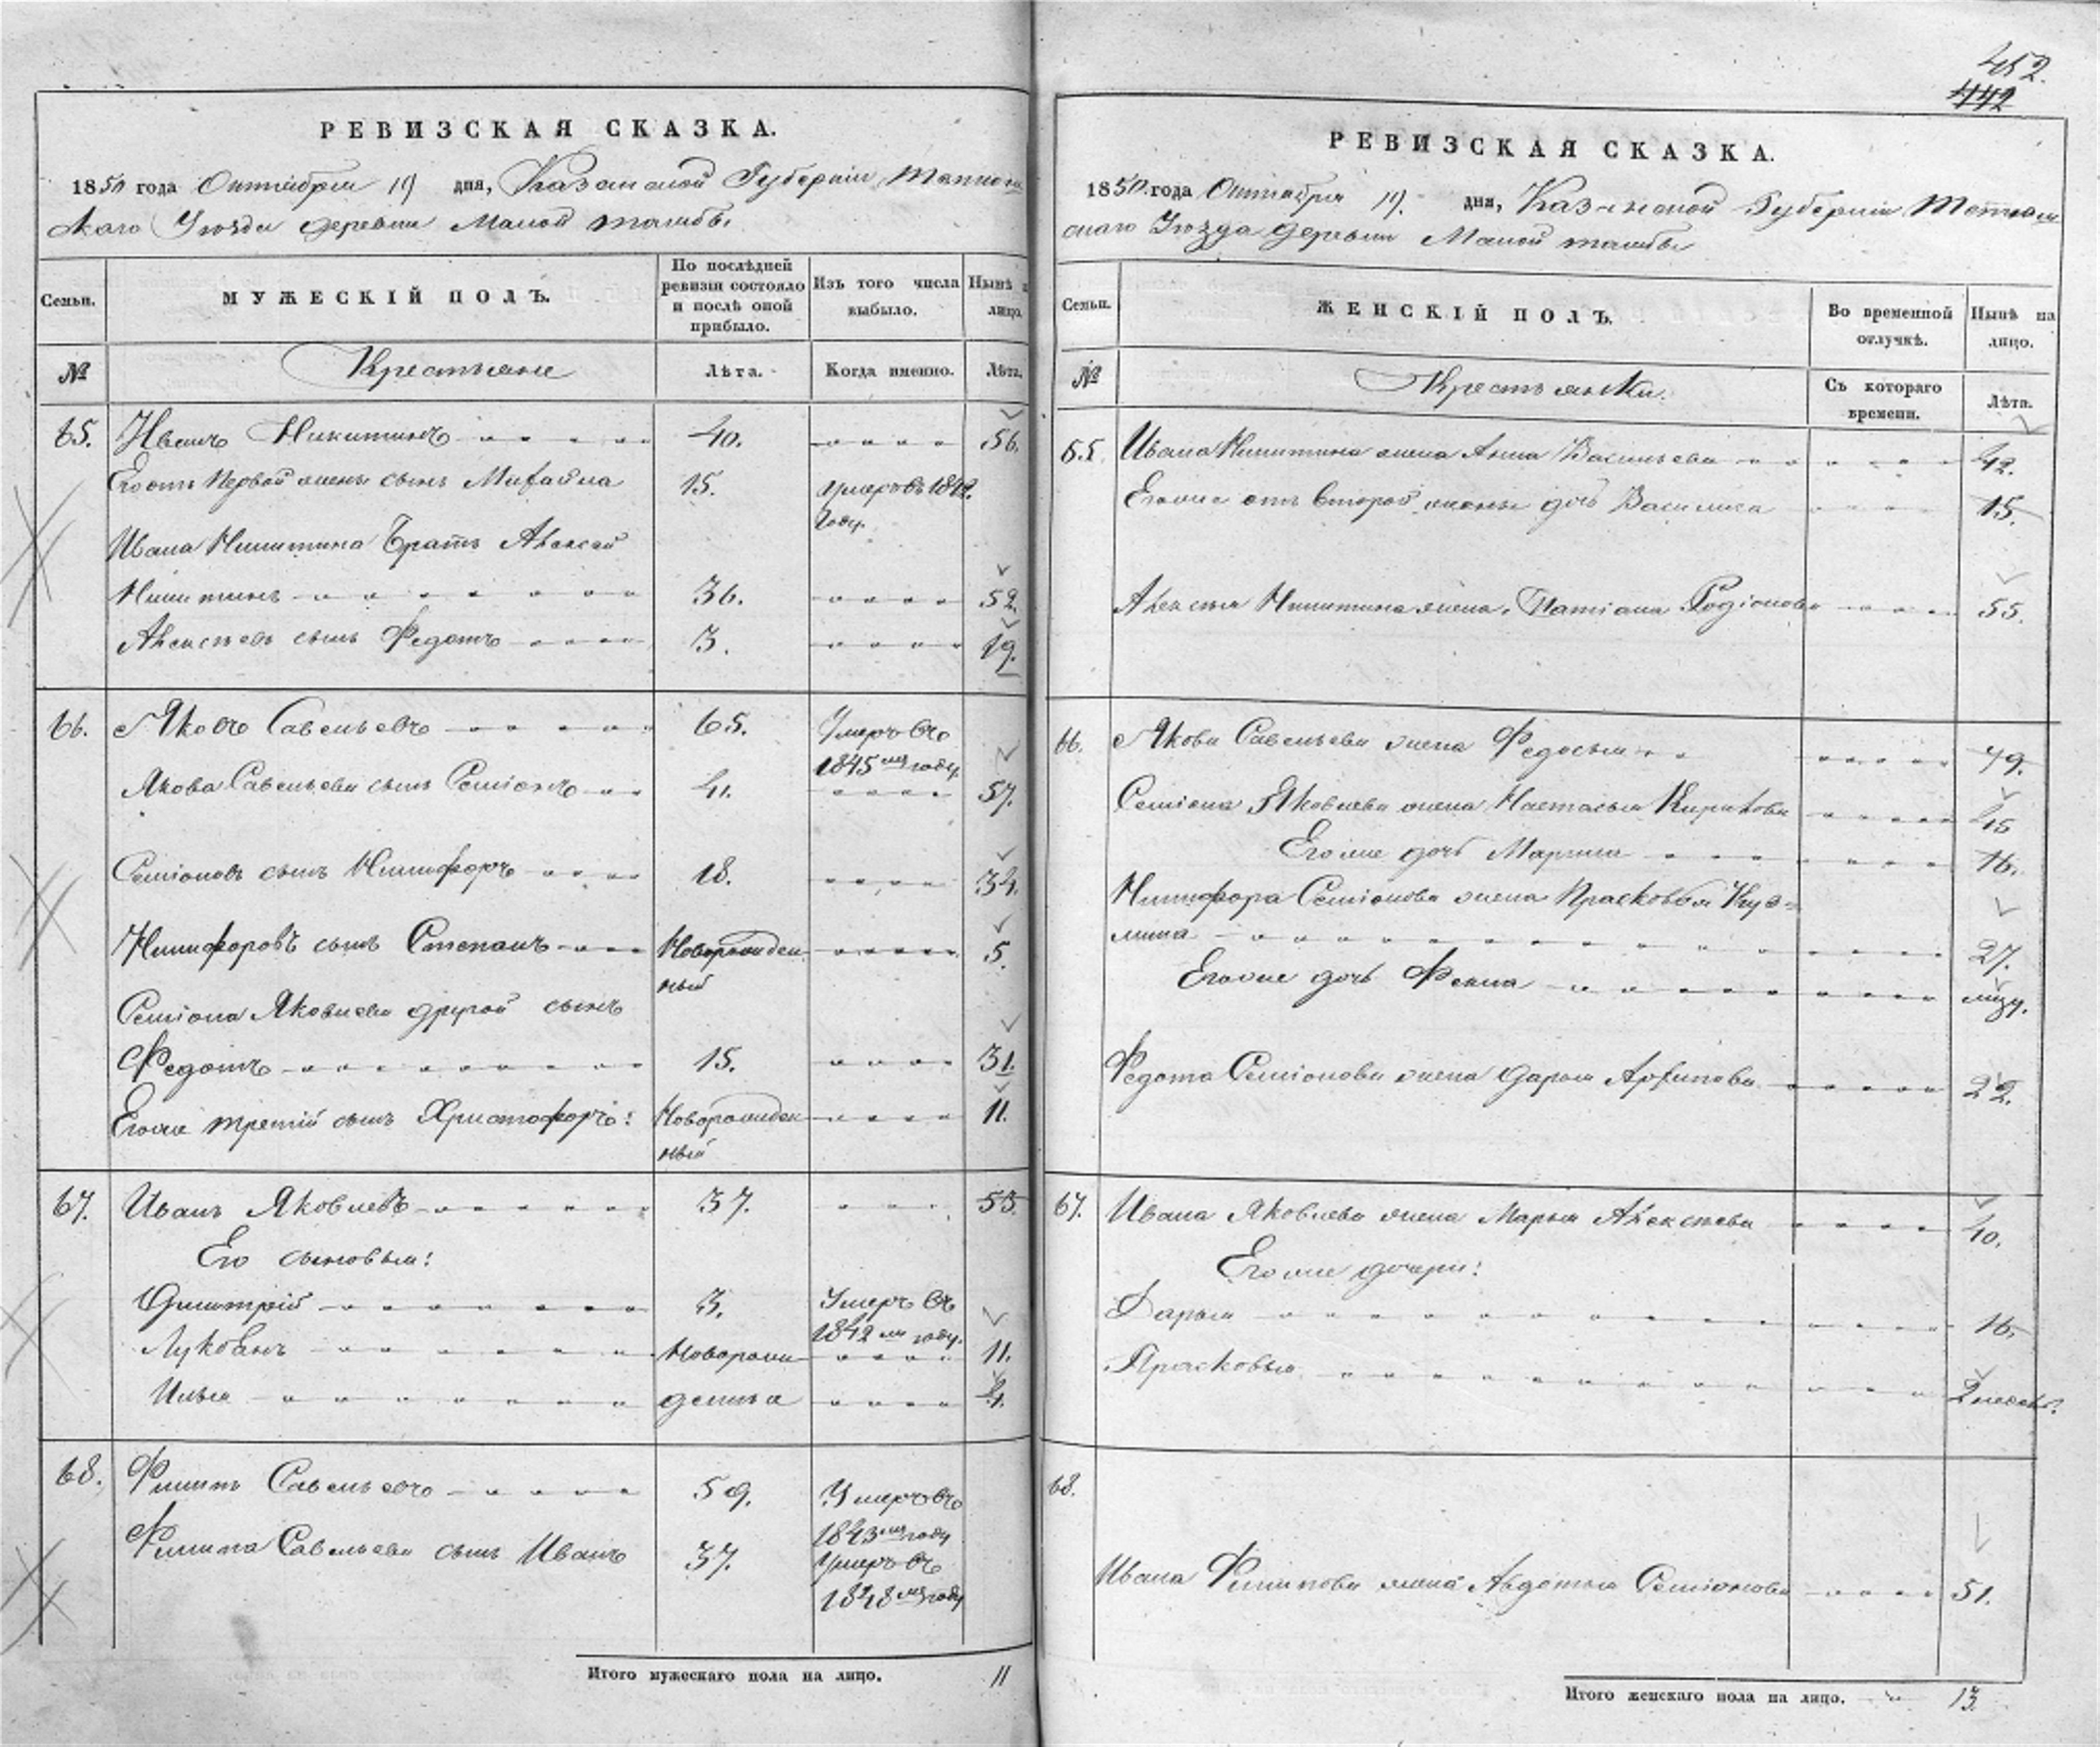 452.
442
РЕВИЗСКАЯ СКАЗКА.
1850 года Октября 19 дня, Казанской Губерніи
скаго Уѣзда деревни Малой
Семьи. МУЖЕСКІЙ ПОЛЪ. По послѣдней ревизіи состояло и послѣ оной прибыло. Изъ того числа выбыло. Нынѣ лицо.
№ Крестьяне Лѣта. Когда именно. Лѣта.
65. Иванъ Никитинъ 40. 56.
Его отъ первой жены сынъ Михайла 15. Умеръ въ 184
году.
Ивана Никитина братъ Алексей
Никитинъ 36. 52.
Алексѣевъ сынъ Федотъ 3. 19.
66. Яковъ Савельевъ 65. Умеръ въ
1845мъ году.
Якова Савельева сынъ Семіонъ 41. 57.
Семіоновъ сынъ Никифоръ 18. 34.
Никифоровъ сынъ Степанъ Новорожден 5.
ный
Семіона Яковлева другой сынъ
Федотъ 15. 31.
Егоже третій сынъ Христофоръ: Новорожден 11.
ный
67. Иванъ Яковлевъ 37. 53.
Его сыновья:
Дмитрій 3. Умеръ въ
1842мъ году.
Лукьянъ Новорож 11.
Илья денны
68. Филипъ Савельевъ 59. Умеръ въ
1843мъ году
Филипа Савельева сынъ Иванъ 37. Умеръ въ
1848мъ году
Итого мужескаго пола на лицо. 11
РЕВИЗСКАЯ СКАЗКА.
1850 года Октября 19. дня, Казанской Губерніи
скаго Уѣзда деревни Малой
Семьи. ЖЕНСКІЙ ПОЛЪ. Во временной отлучкѣ. Нынѣ на лицо.
№ Крестьянки. Съ котораго времени. Лѣта.
65. Ивана Никитина жена Анна Васильева 42.
Егоже отъ второй жены дочь Василиса 15.
Алексѣя Никитина жена Татіана Родіонова 55.
66. Якова Савельева жена Федосья 79.
Семіона Яковлева жена Настасья Кирилова 45
Егоже дочь Марина 16.
Никифора Семіонова жена Прасковья Куз=
мина 27.
Егоже дочь Фекла
Федота Семіонова жена Дарья Архипова 22.
67. Ивана Яковлева жена Марья Алексѣева 40.
Егоже дочери:
Дарья 16.
Прасковья
68.
Ивана Филипова жена Авдотья Семіонова 51.
Итого женскаго пола на лицо. 13.